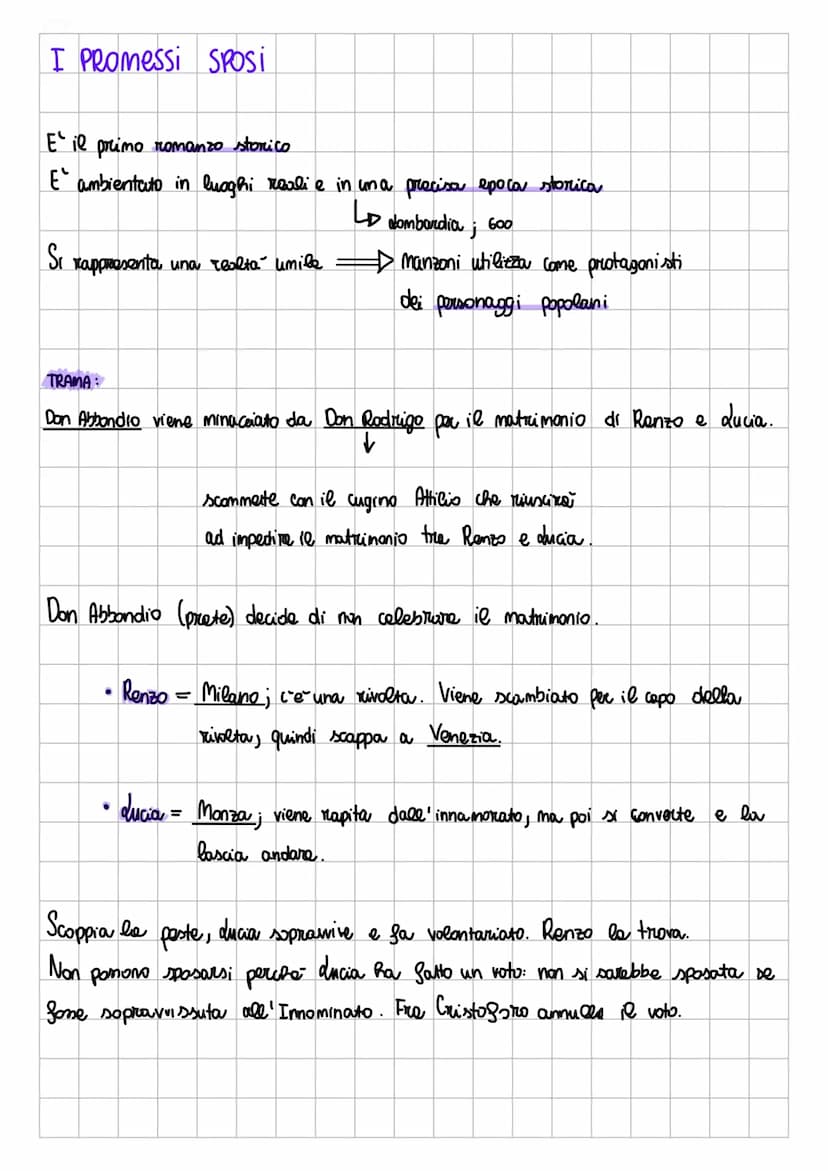 I PROMESSI SPOSI
E' il primo romanzo storico
E' ambientato in luoghi reali e in una precisa epoca storica
↳ Lombardia ; 600
Si rappresenta una realtà umile ⟹ Manzoni utilizza come protagonisti
dei personaggi popolani
TRAMA:
Don Abbondio viene minacciato da Don Rodrigo per il matrimonio di Renzo e Lucia.
↓
scommette con il cugino Attilio che riuscirà
ad impedire il matrimonio tra Renzo e Lucia.
Don Abbondio (prete) decide di non celebrare il matrimonio.
• Renzo = Milano; c'è una rivolta. Viene scambiato per il capo della
rivolta, quindi scappa a Venezia.
• Lucia = Monza; viene rapita dall'innamorato, ma poi si converte e la
lascia andare.
Scoppia la peste, Lucia sopravvive e fa volontariato. Renzo la trova.
Non possono sposarsi perché Lucia ha fatto un voto: non si sarebbe sposata se
fosse sopravvissuta all'Innominato. Fra Cristoforo annulla il voto.